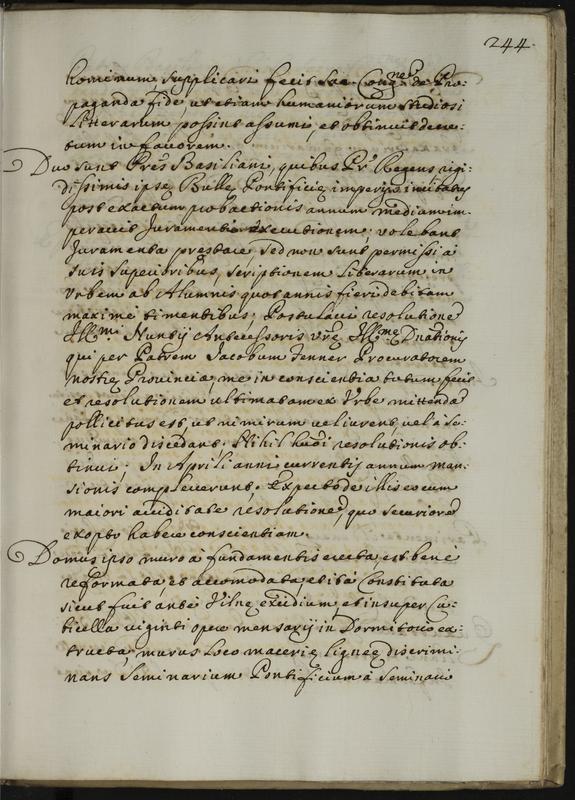 244.
hominum supplicari fecit Sac. Congnẽ de Pro:
paganda fide ut etiam humaniorum studiosi
litterarum possint assumi, et obtinuit decre:
tum in favorem.
Duo sunt Prẽs Basiliani, quibus Pr. Regens rigi:
dissimis ipsę Bullę Pontificię imperijs
post exactum probationis annum
peracti Juramenti executionem; volebant
Juramenta prestare sed non sunt permissi à
suis superioribus, scriptionem literarum in
Urbem ab Alumnis quotannis fieri debitam
maximè timentibus; Postulavi resolutionẽ
Illmi Nuntij Antecessoris vrẽ Illmę Dnationis
qui per Patrem Jacobum Jenner Procuratorem
nostrę Provincię me in conscientia tutum fecit
et resolutionem ultimatam ex Urbe mittendã
pollicitus est, ut nimirum vel iurent, vel à Se:
minario discedant. Nihil resolutionis ob:
tinui. In Aprili anni currentis annum man:
sionis compleverunt. Expecto de illis eo cum
maiori resolutionẽ, quo securiorẽ
exopto habere conscientiam.
Domus ipso muro à fundamentis erecta, est benè
reformata, et accomodata et ità Constituta
sicut fuit antè Vilnę excidium, et insuper Cu:
bicella viginti opere mensarij in Dormitorio ex:
tructa, murus loco macerię ligneę discrimi:
nans Seminarium Pontificium à Seminario